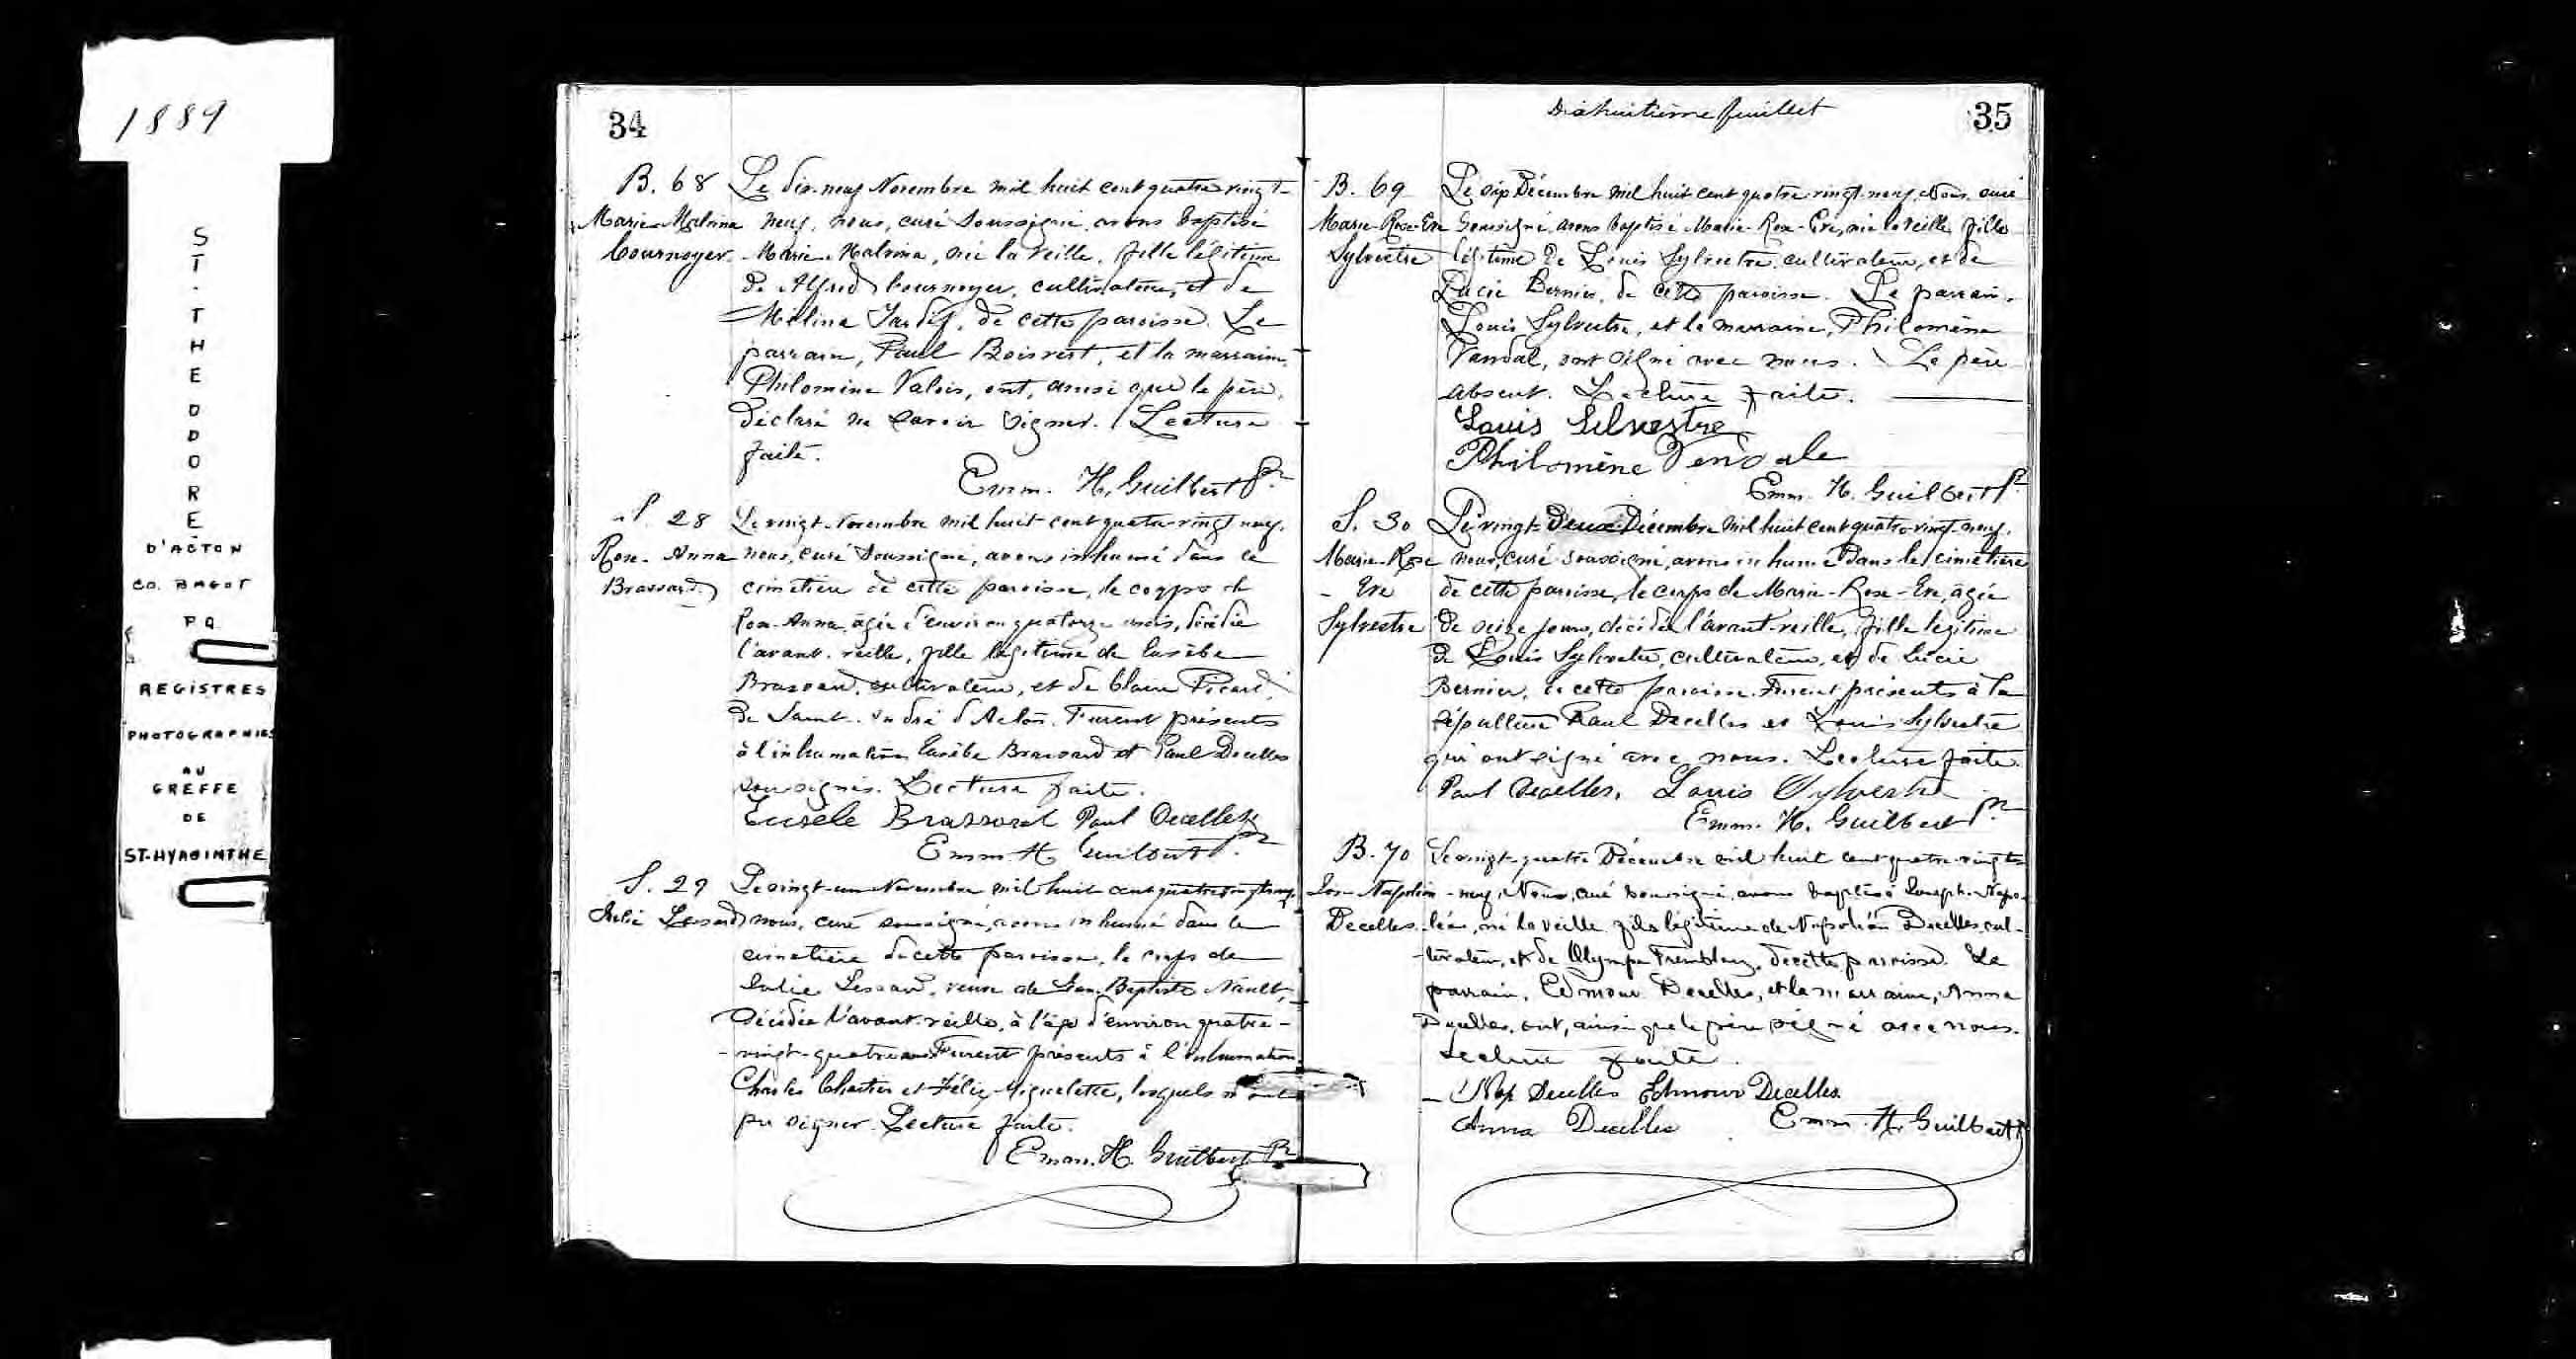 1889
ST. THEODORE
D'ACTON
CO. BAGOT
P.Q.
REGISTRES
PHOTOGRAPHIES
AU
GREFFE
DE
ST-HYACINTHE
34
B. 68
Marie-Malvina
Cournoyer
Le dix-neuf Novembre mil huit cent quatre vingt-
neuf, nous, curé soussigné avons baptisé
Marie-Malvina, née la veille, fille légitime
de Alfred Cournoyer, cultivateur, et de
Mélina Tardif, de cette paroisse. Le
parrain, Paul Boisvert, et la marraine,
Philomène Valois, ont, ainsi que le père,
déclaré ne savoir signer. Lecture
faite.
Emm. H. Guilbert Ptre
S. 28
Rose-Anna
Brassard
Le vingt Novembre mil huit cent quatre-vingt neuf,
nous, curé soussigné, avons inhumé dans le
cimetière de cette paroisse, le corps de
Rose-Anna, âgée d'environ quatorze mois, décédée
l'avant-veille, fille légitime de Eusèbe
Brassard, cultivateur, et de Claire Picard,
de Saint-André d'Acton. Furent présents
à l'inhumation Eusèbe Brassard et Paul Decelles
soussignés. Lecture faite.
Eusèbe Brassard Paul Decelles
Emm. H. Guilbert Ptre
S. 29
Julie Lessard
Le vingt-un Novembre mil huit cent quatre vingt neuf,
nous, curé soussigné, avons inhumé dans le
cimetière de cette paroisse, le corps de
Julie Lessard, veuve de Jean-Baptiste Nault,
décédée l'avant-veille, à l'âge d'environ quatre-
-vingt-quatre ans. Furent présents à l'inhumation
Charles Chartier et Félix, lesquels n'ont
pu signer. Lecture faite.
Emm. H. Guilbert Ptre
Dixhuitième feuillet
35
B. 69
Marie-Rose-Eve
Sylvestre
Le six Décembre mil huit cent quatre-vingt-neuf, Nous, curé
soussigné, avons baptisé Marie-Rose-Eve, née la veille, fille
légitime de Louis Sylvestre, cultivateur, et de
Lucie Bernier, de cette paroisse. Le parrain,
Louis Sylvestre, et la marraine, Philomène
Vandal, ont signé avec nous. Le père
absent. Lecture faite.
Louis Silvestre
Philomène Vendale
Emm. H. Guilbert Ptre
S. 30
Marie-Rose
-Eve
Sylvestre
Le vingt-deux Décembre mil huit cent quatre-vingt-neuf,
nous, curé soussigné, avons inhumé dans le cimetière
de cette paroisse, le corps de Marie-Rose-Eve, âgée
de seize jours, décédée l'avant-veille, fille légitime
de Louis Sylvestre, cultivateur, et de Lucie
Bernier, de cette paroisse. Furent présents à la
sépulture Paul Decelles et Louis Sylvestre
qui ont signé avec nous. Lecture faite.
Paul Decelles. Louis Sylvestre
Emm. H. Guilbert Ptre
B. 70
Jos-Napoléon
Decelles
Le vingt-quatre Décembre mil huit cent quatre-vingt-
-neuf, Nous, curé soussigné, avons baptisé Joseph-Napo-
léon, né la veille fils légitime de Napoléon Decelles, cul-
-tivateur, et de Olympe Tremblay, de cette paroisse. Le
parrain, Edmour Decelles, et la marraine, Anna
Decelles, ont, ainsi que le père signé avec nous.
Lecture faite.
Nap Decelles Edmour Decelles.
Anna Decelles Emm. H. Guilbert Ptre